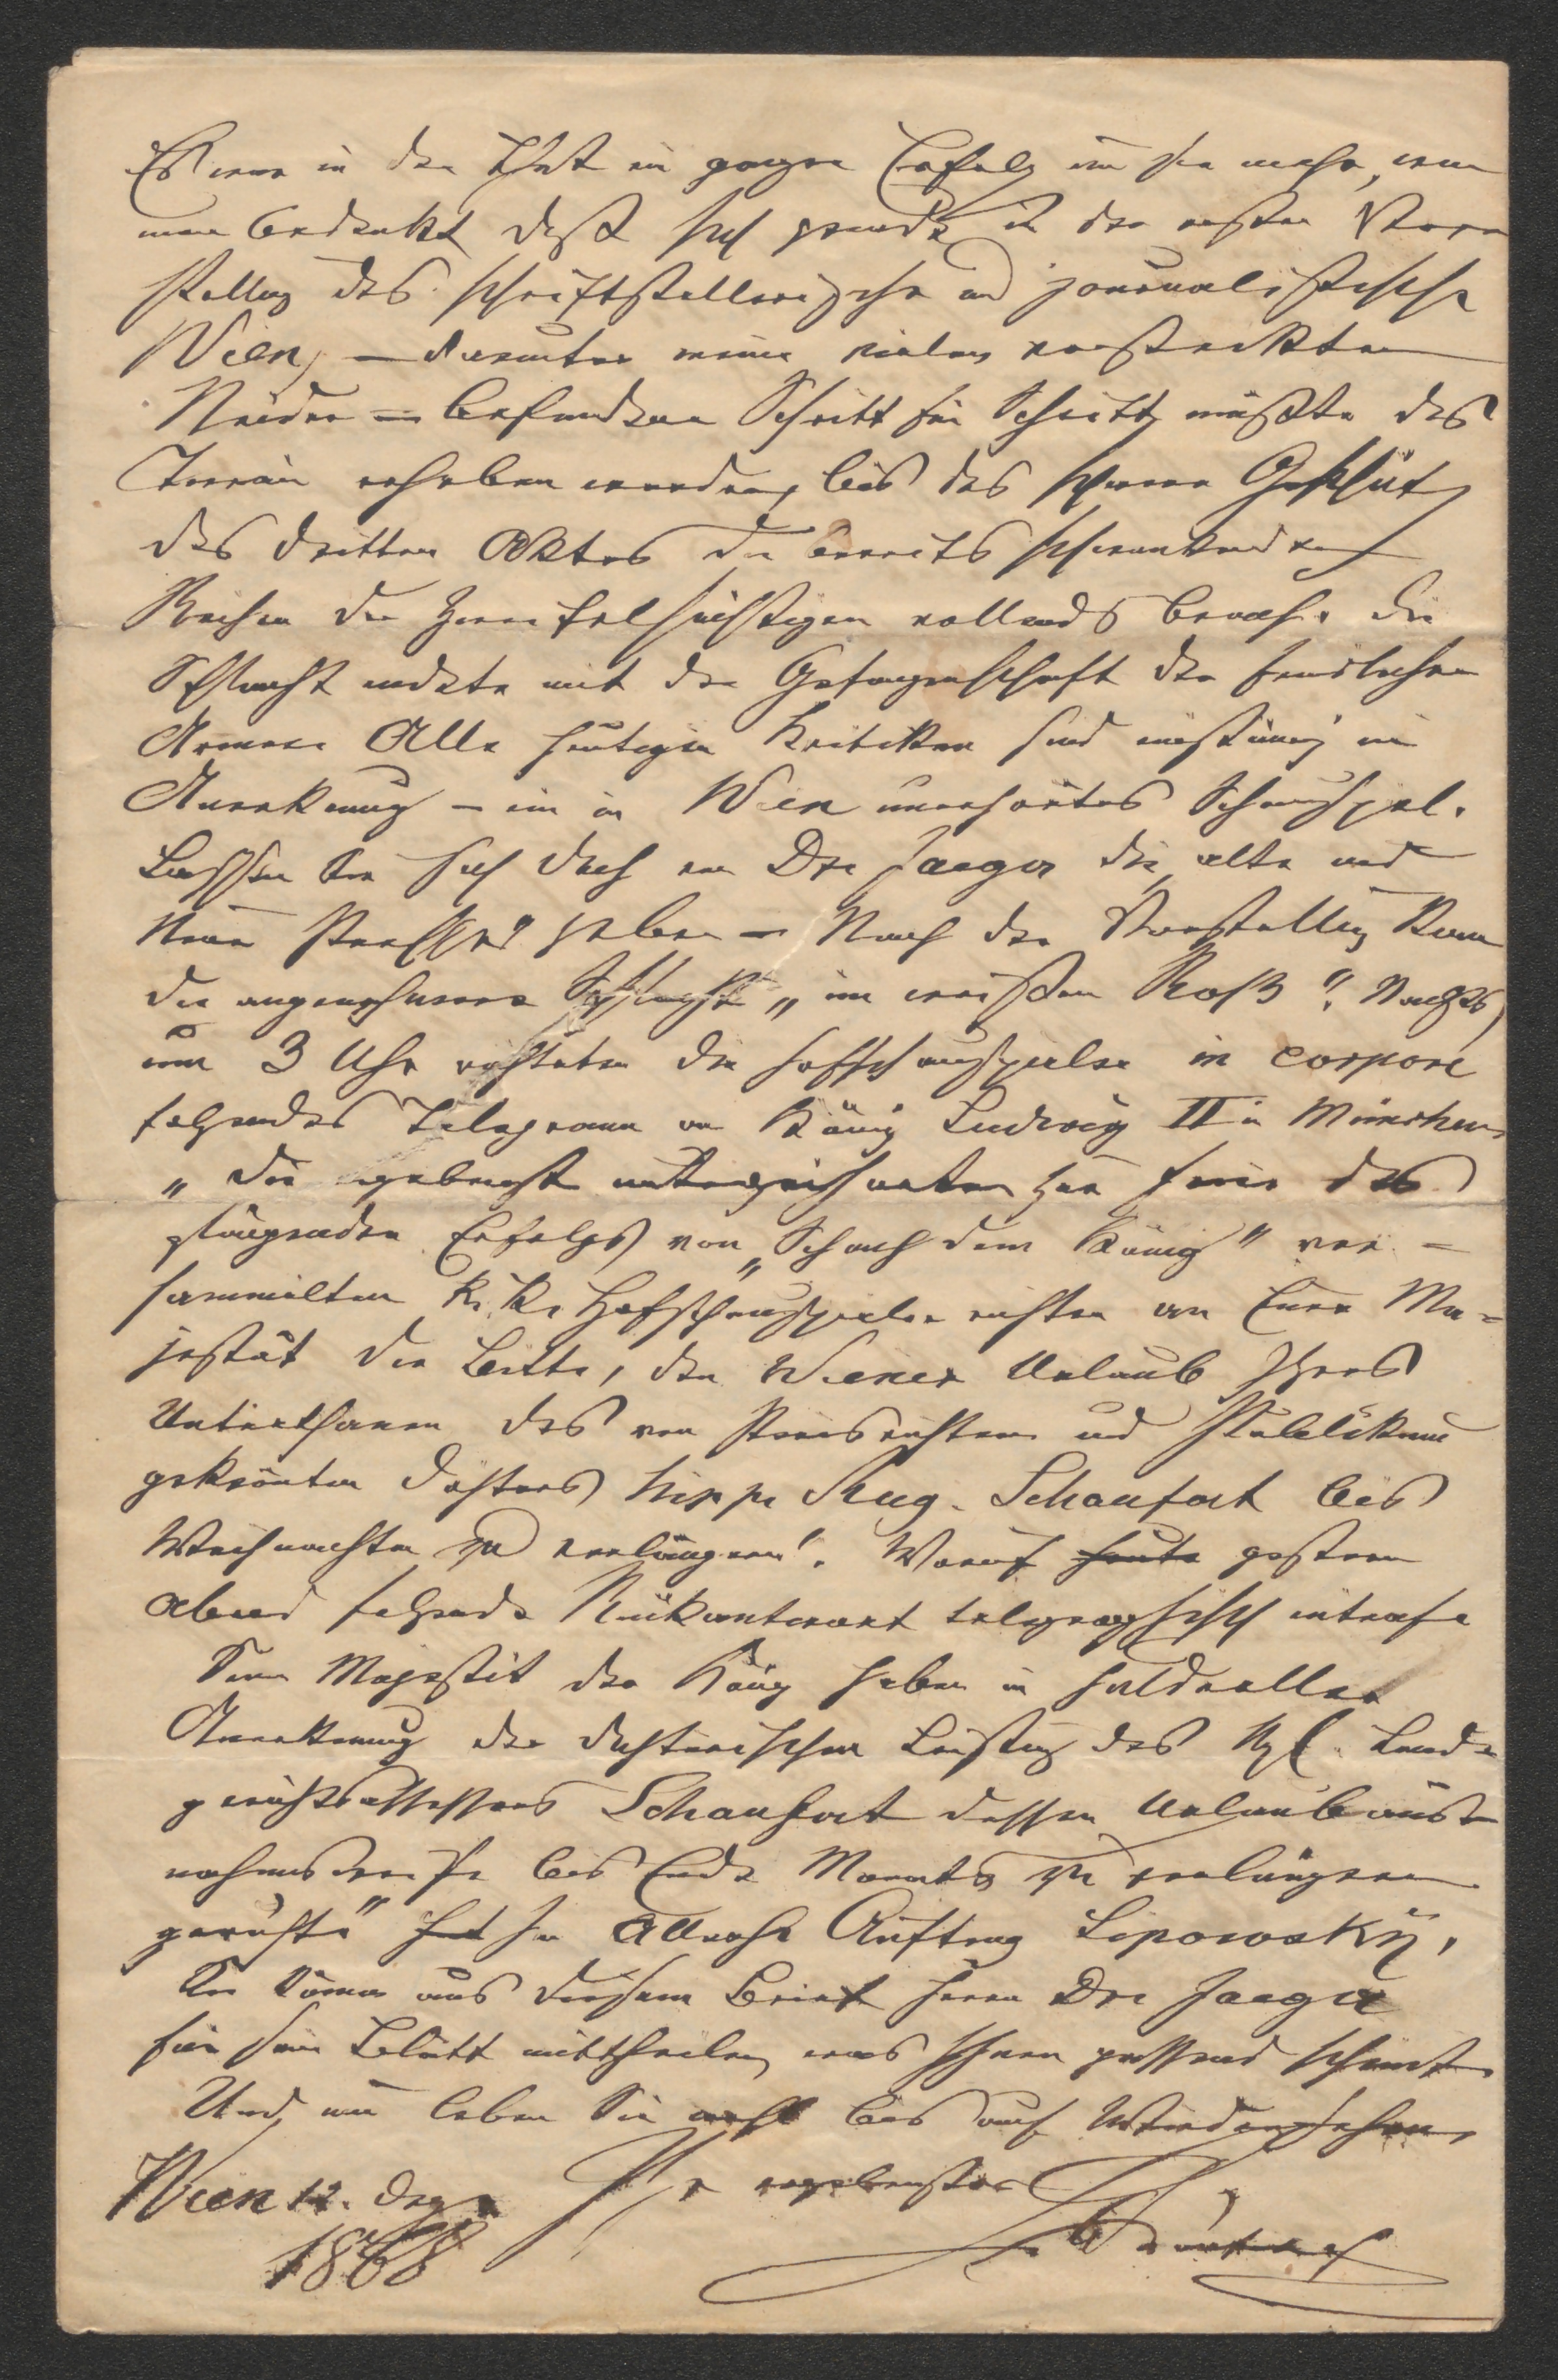 Es war in der That ein ganzer Erfolg um so mehr, wenn
man bedenkt daß sich gerade in der ersten Vor
stellung das schriftstellerische und journalistische
Wien, – darunter meine vielen versteckten
Neider – befanden Schritt für Schritt mußte das
Terrain erhoben werden, bis das schwere Geschütz
des dritten Aktes die bereits schwankenden
Reihen der Zweifelsüchtigen vollends brach. Die
Schlacht endete mit der Gefangenschaft der feindlichen
Armee Alle heutigen Kritiken sind einstimmig in
Anerkennung – ein in Wien unerhörtes Schauspiel.
Lassen Sie sich doch von Dr. Jaeger die „alte und
Neue Presse" geben – Nach der Vorstellung kam
die angenehmere Schlacht „im weißen Roß". Nachts
um 3 Uhr richteten die Hofschauspieler in corpore
folgendes Telegramm an König Ludwig II in München
„Die ergebenst unterzeichneten zur Feier des
glänzenden Erfolges von „Schach dem König" ver-
sammelten K. K. Hofschauspieler richten an Eure Ma-
jestät die Bitte, den Wiener Urlaub Ihres
Unterthanen des von Preisrichtern und Publikum
gekrönten Dichters Hipp. Aug. Schaufert bis
Weihnachten zu verlängern". Worauf heute gestern
abend folgende Rückantwort telegraphisch eintraf
Seine Majestät der König haben in huldvoller
Anerkennung der dichterischen Leistung des Kgl. Land-
gerichtsassessors Schaufert dessen Urlaub aus-
nahmsweise bis Ende Monats zu verlängern
geruht" Auftrag Lipowsky.
Sie können aus diesem Brief Herrn Dr. Jaeger
für sein Blatt mittheilen, was Ihnen passend scheint.
Und nun leben Sie wohl bis auf Wiedersehen,
Wien 12. Dez. Ihr ergebenster
1868